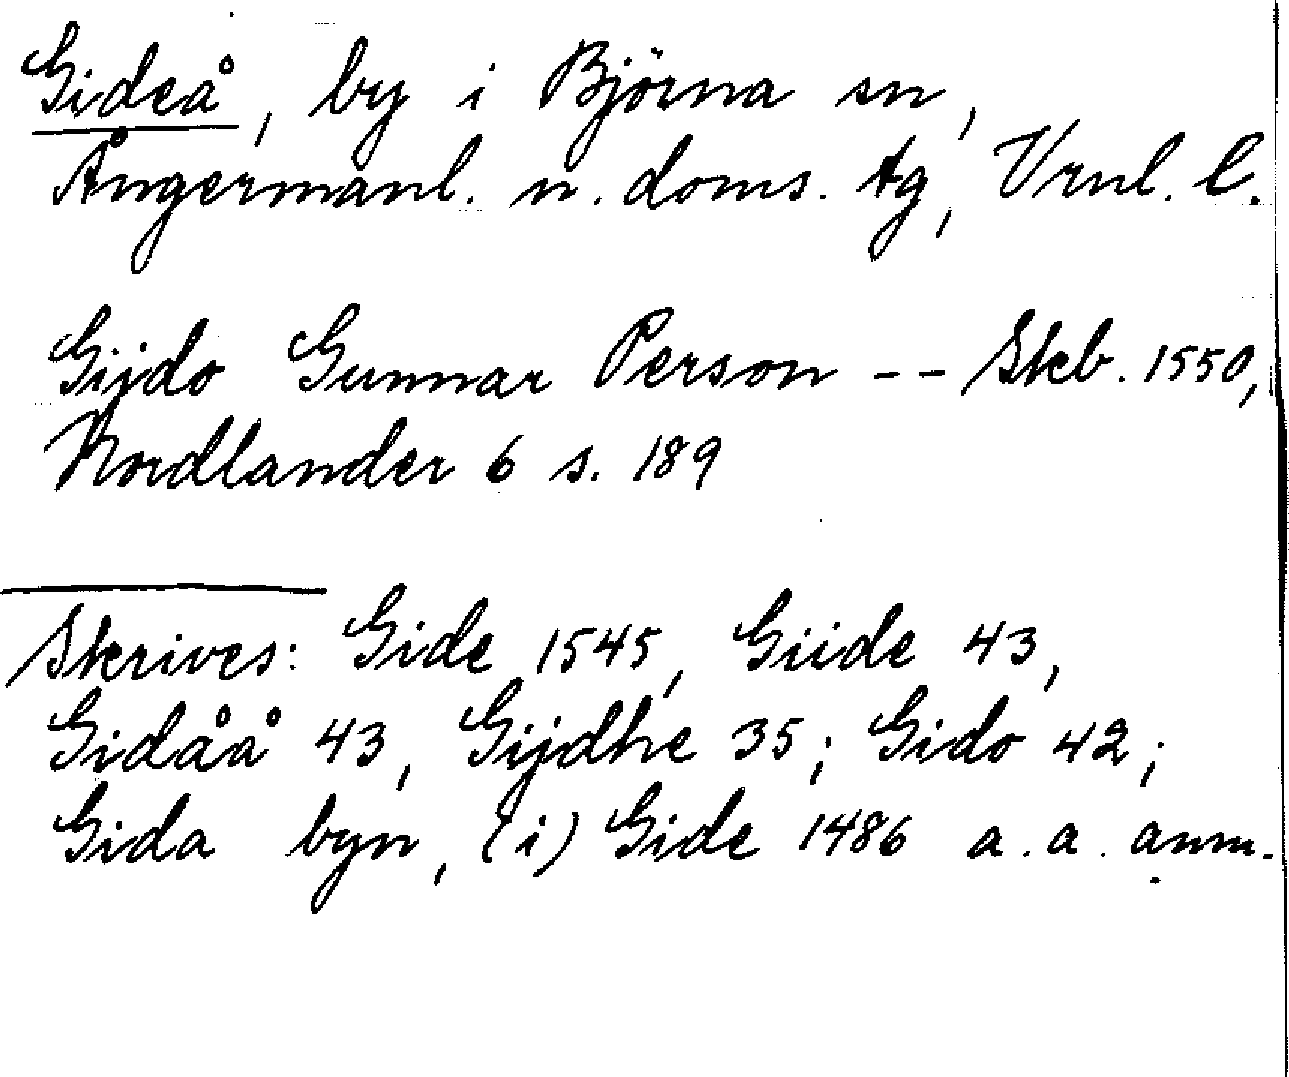 Gideå, by i Björna sn,
Ångermanl. n. doms. tg, Vrnl. l.
Gijdo Gunnar Person -- Skb. 1550,
Nordlander 6 s. 189
Skrives: Gide 1545, Giide 43,
Gidåå 43, Gijdhe 35; Gido 42;
Gida byn, (i) Gide 1486 a. a. anm.